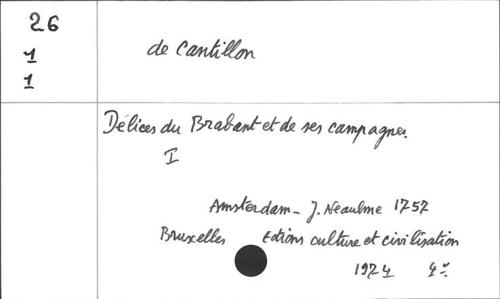 26
1
1
de Cantillon
Délices du Brabant et de ses campagnes.
I
Amsterdam - J. Neaulme 1757
Bruxelles Editions culture et civilisation
1974 4°